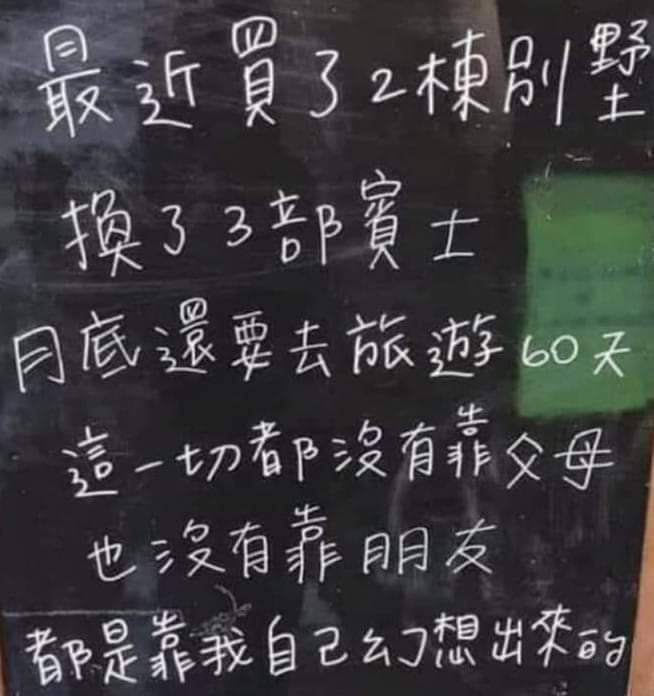 最近買了2棟別墅
換了3部賓士
月底還要去旅遊60天
這一切都沒有靠父母
也沒有靠朋友
都是靠我自己幻想出來的